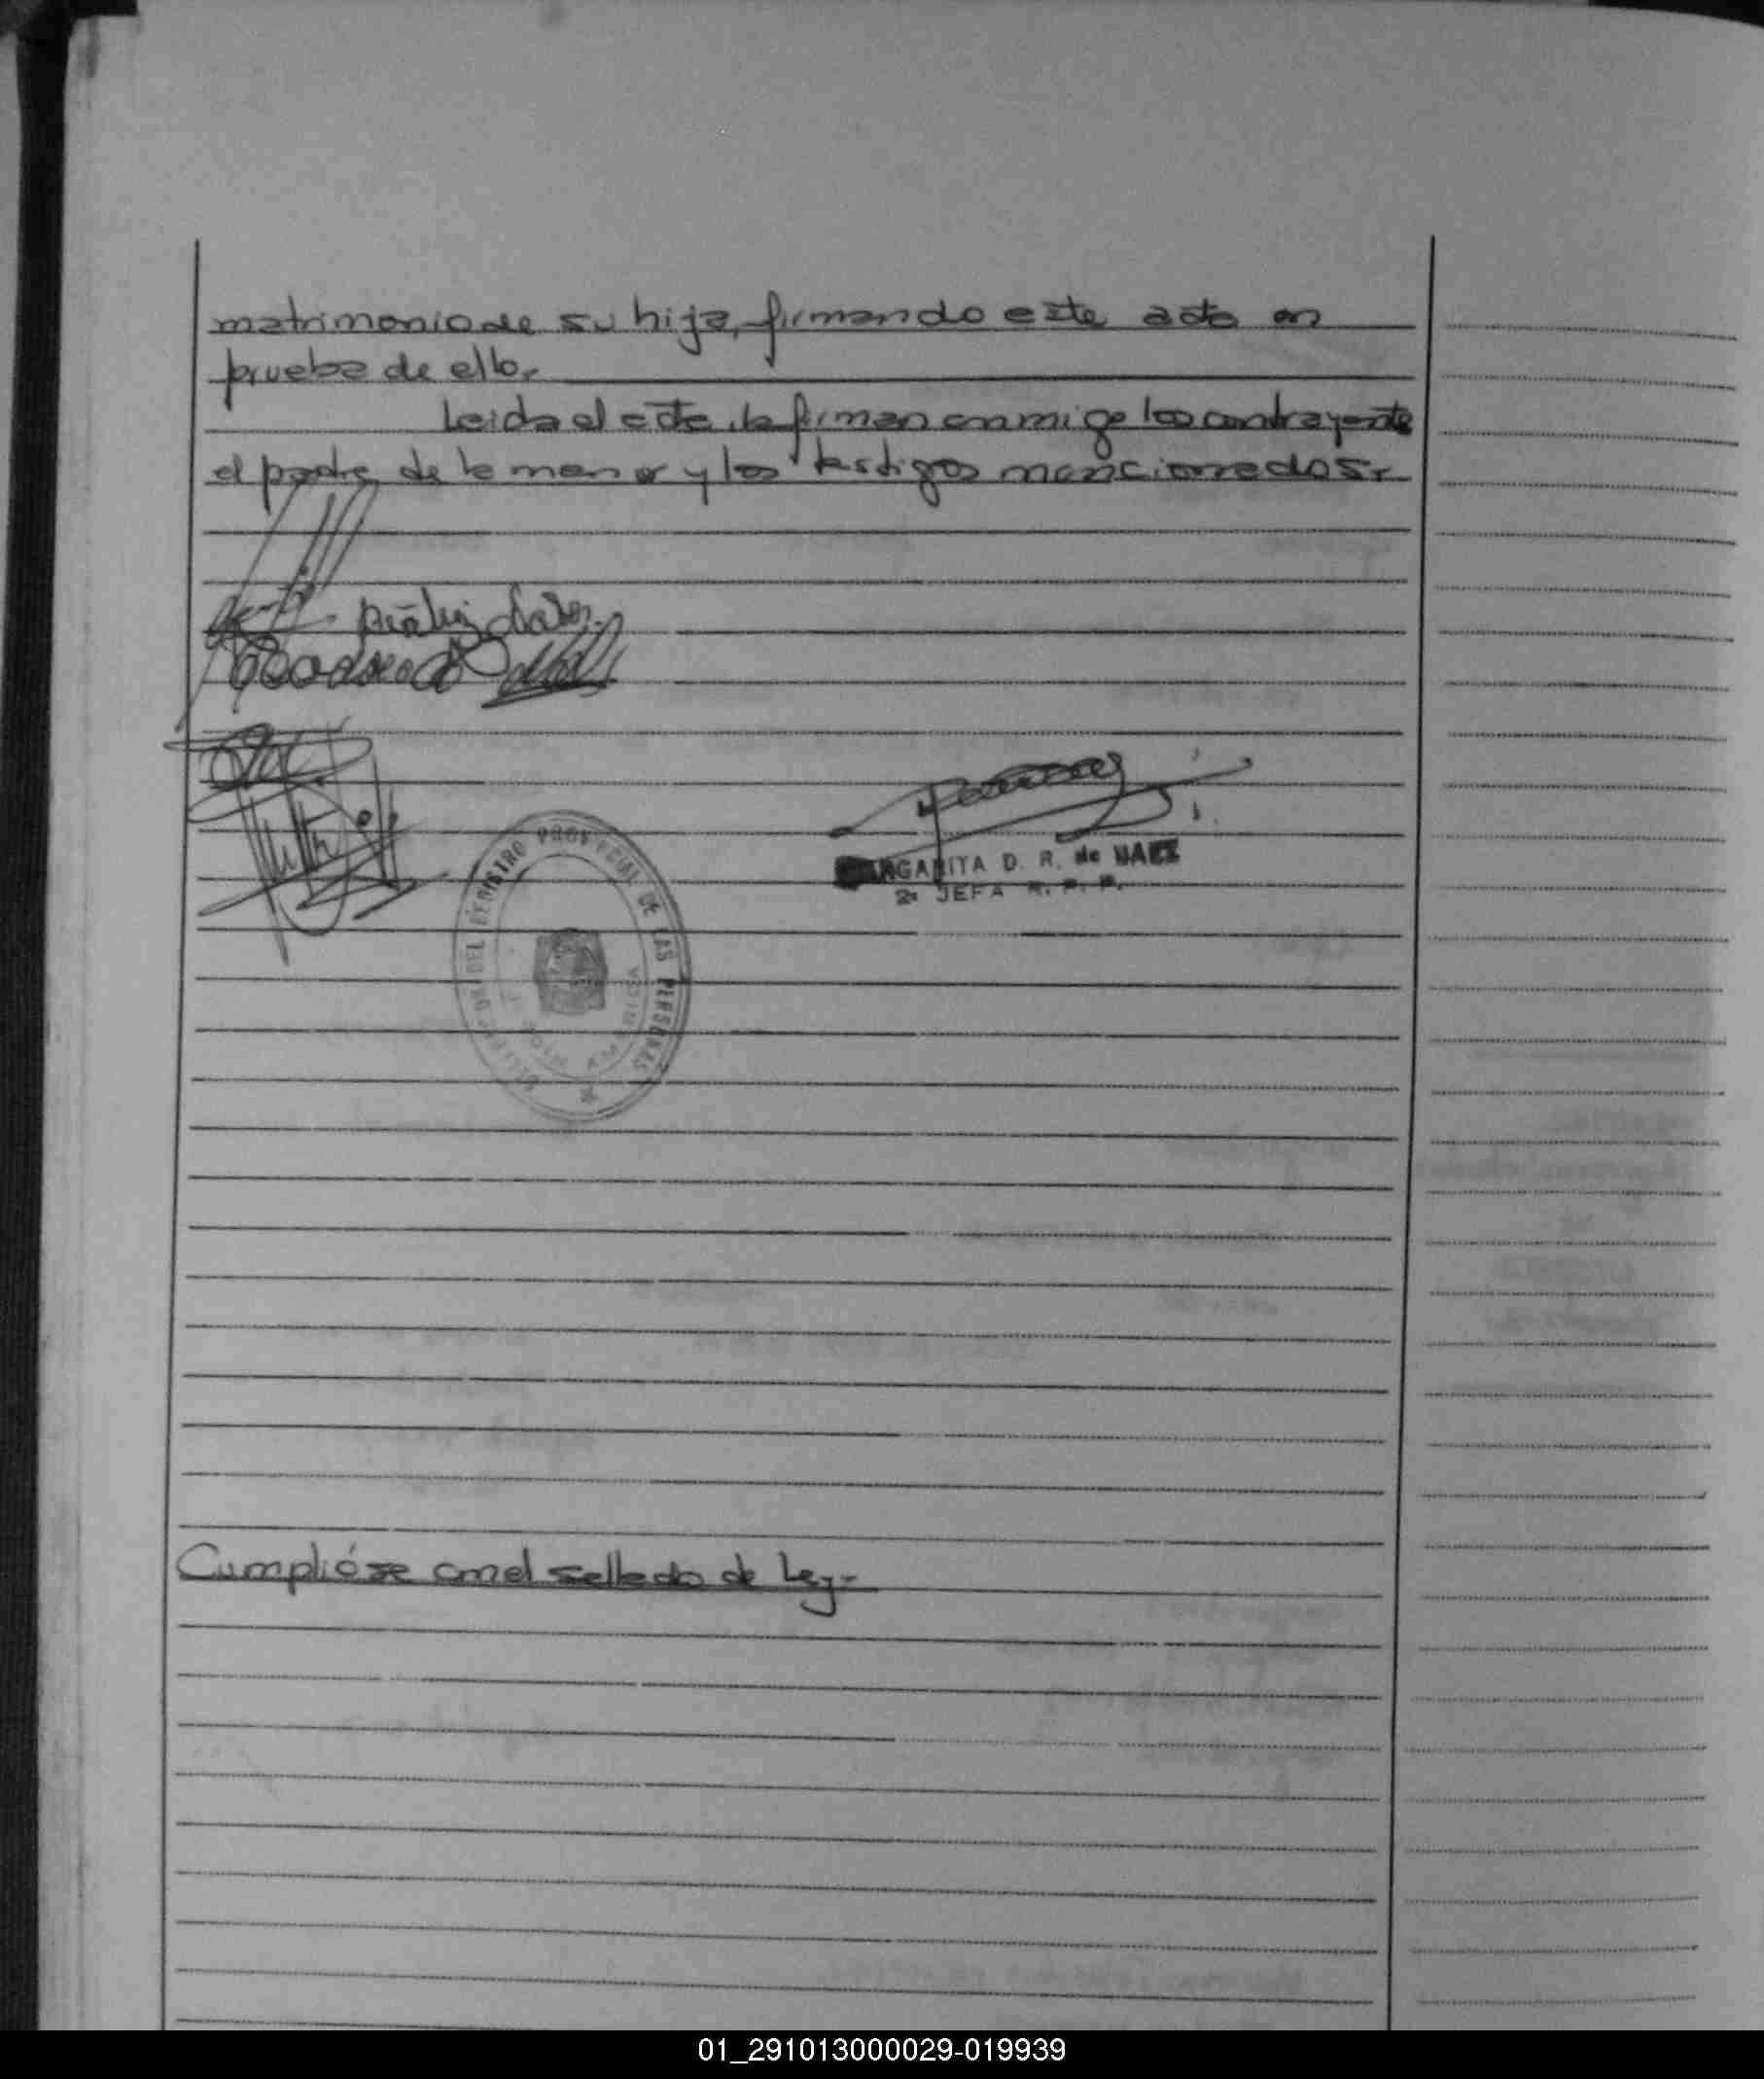 matrimonio de su hija, firmando este acta en
prueba de ello.
Leida el acta, la firman conmigo los contrayente
el padre de la menor y los testigos mencionados.-
MARGARITA D. R. de
2ª JEFA R. P. P.
DEL REGISTRO PROVINCIAL DE LAS PERSONAS
Cumplióse con el sellado de Ley.-
01_291013000029-019939